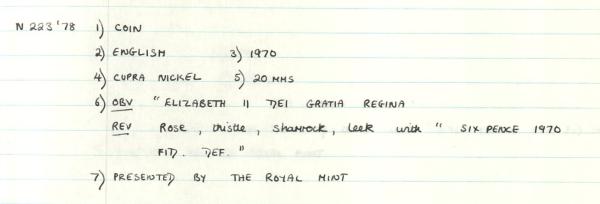 N 223'78 1) COIN
2) ENGLISH 3) 1970
4) CUPRA NICKEL 5) 20 MMS
6) OBV " ELIZABETH II DEI GRATIA REGINA
REV Rose, thistle, shamrock, leek with " SIX PENCE 1970
FID. DEF. "
7) PRESENTED BY THE ROYAL MINT